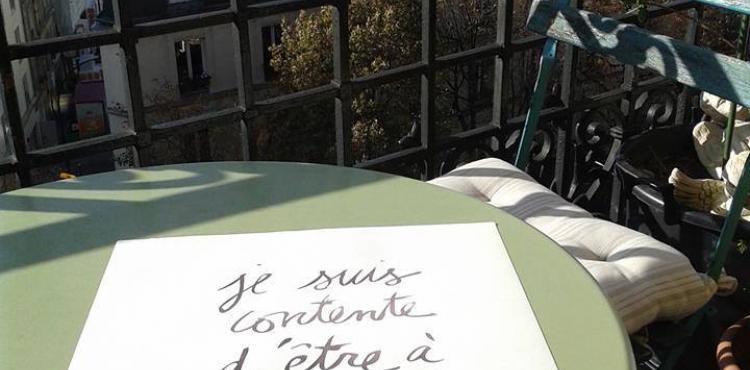 je suis
contente
d'être à